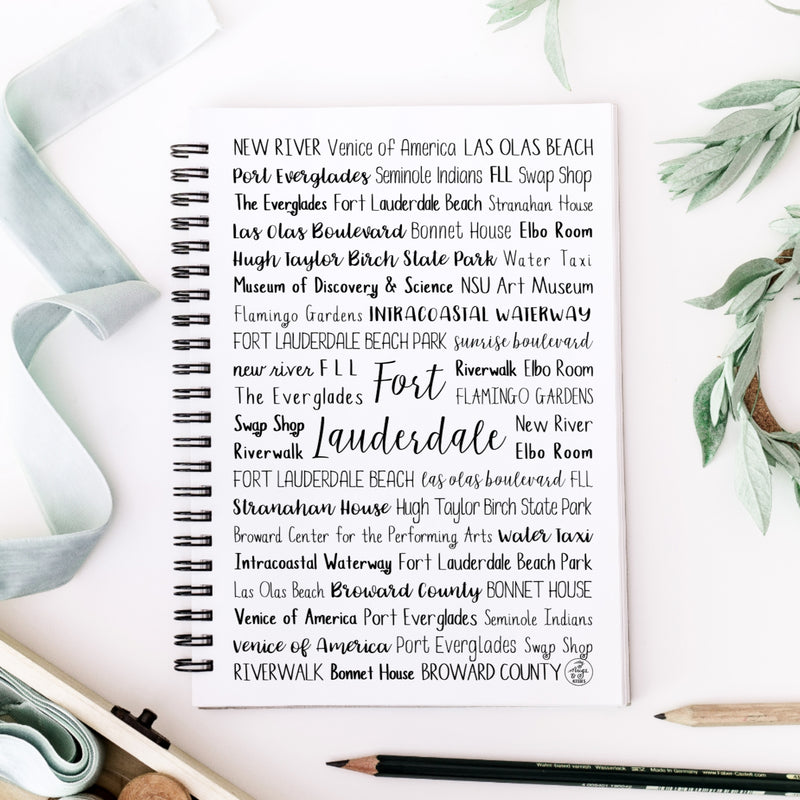 NEW RIVER Venice of America LAS OLAS BEACH
Port Everglades Seminole Indians FLL Swap Shop
The Everglades Fort Lauderdale Beach Stranahan House
Las Olas Boulevard Bonnet House Elbo Room
Hugh Taylor Birch State Park Water Taxi
Museum of Discovery & Science NSU Art Museum
Flamingo Gardens INTRACOASTAL WATERWAY
FORT LAUDERDALE BEACH PARK sunrise boulevard
new river FLL Riverwalk Elbo Room
Fort
The Everglades FLAMINGO GARDENS
Swap Shop New River
Lauderdale
Riverwalk Elbo Room
FORT LAUDERDALE BEACH las olas boulevard FLL
Stranahan House Hugh Taylor Birch State Park
Broward Center for the Performing Arts Water Taxi
Intracoastal Waterway Fort Lauderdale Beach Park
Las Olas Beach Broward County BONNET HOUSE
Venice of America Port Everglades Seminole Indians
venice of America Port Everglades Swap Shop
RIVERWALK Bonnet House BROWARD COUNTY
Made in Germany www.Faber-Castell.com